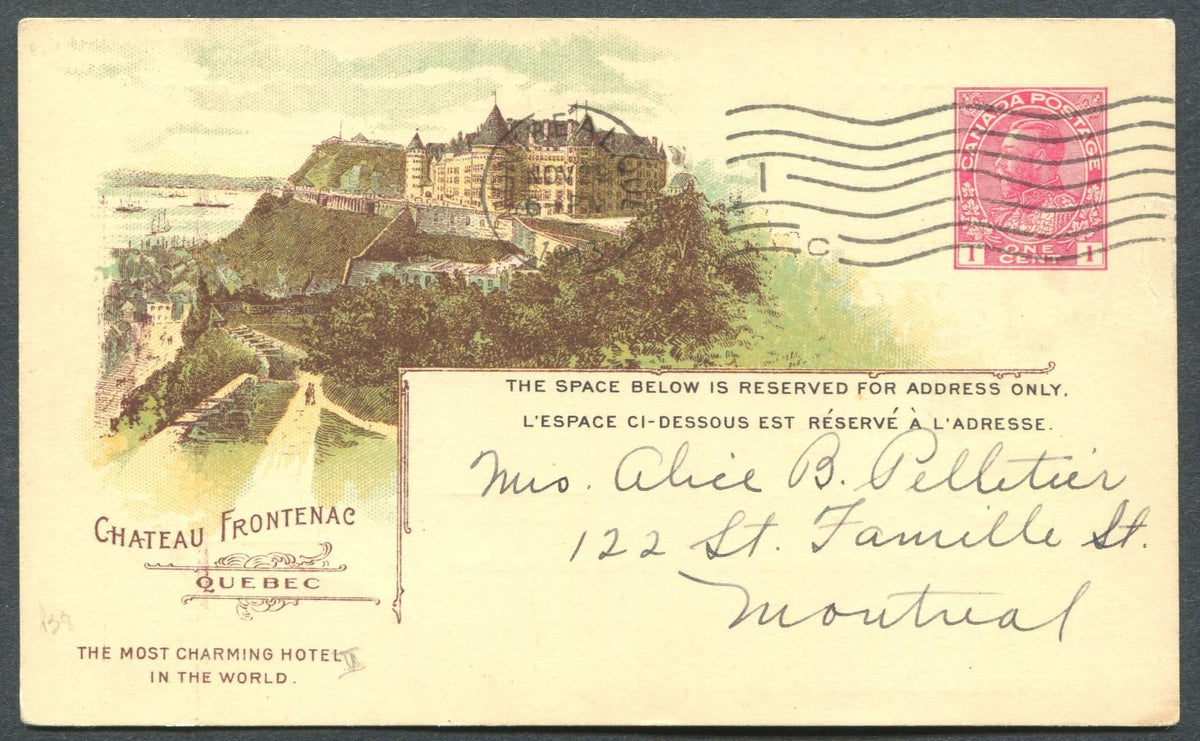 CANADA POSTAGE
1 ONE CENT 1
MONTREAL, QUE
NOV
1
C
THE SPACE BELOW IS RESERVED FOR ADDRESS ONLY.
L'ESPACE CI-DESSOUS EST RÉSERVÉ À L'ADRESSE.
Mrs. Alice B. Pelletier
122 St. Famille St.
Montreal
CHATEAU FRONTENAC
QUEBEC
THE MOST CHARMING HOTEL
IN THE WORLD.